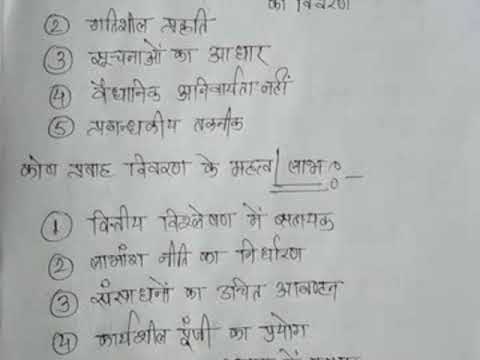 का विवरण
② गतिशील प्रकृति
③ सूचनाओं का आधार
④ वैधानिक अनिवार्यता नहीं
⑤ प्रबन्धकीय तकनीक
कोष प्रवाह विवरण के महत्व / लाभ :-
① वित्तीय विश्लेषण में सहायक
② लाभांश नीति का निर्धारण
③ संसाधनों का उचित आवण्टन
④ कार्यशील पूंजी का प्रयोग